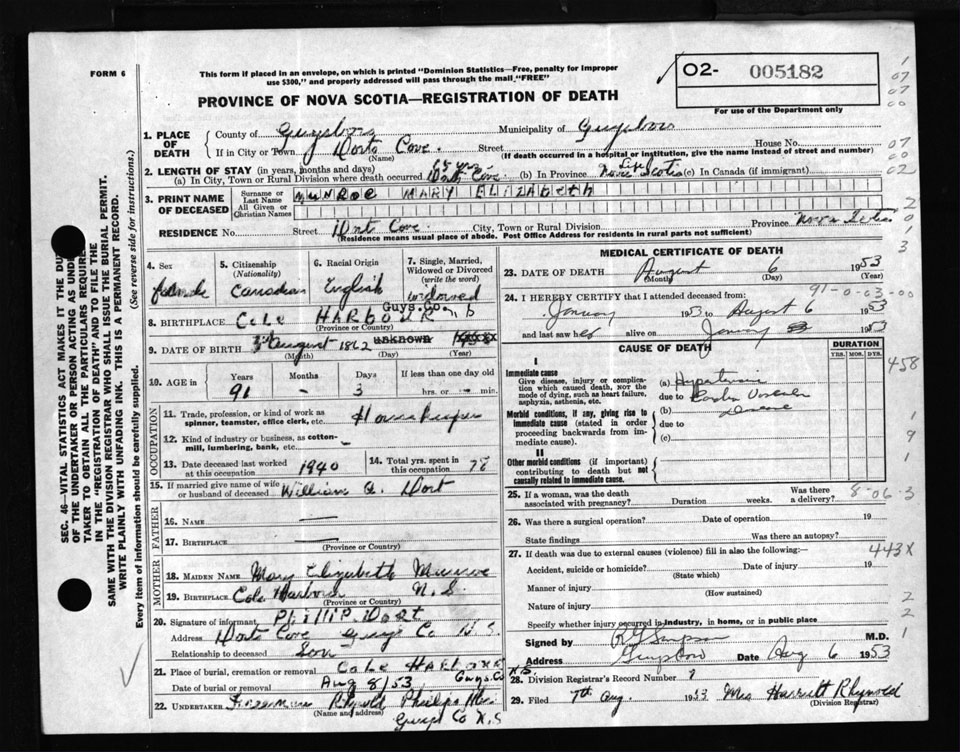 FORM 6
This form if placed in an envelope, on which is printed "Dominion Statistics—Free, penalty for improper
use $300," and properly addressed will pass through the mail "FREE"
O2- 005182
For use of the Department only
PROVINCE OF NOVA SCOTIA—REGISTRATION OF DEATH
1. PLACE OF DEATH
County of Guysboro Municipality of Guysboro
If in City or Town Dorts Cove. Street House No.
(Name) (If death occurred in a hospital or institution, give the name instead of street and number)
2. LENGTH OF STAY (in years, months and days)
(a) In City, Town or Rural Division where death occurred 65 yrs Dorts Cove. (b) In Province Life Nova Scotia (c) In Canada (if immigrant)
3. PRINT NAME OF DECEASED
Surname or Last Name MUNROE MARY ELIZABETH
All Given or Christian Names
RESIDENCE No. Street Dorts Cove. City, Town or Rural Division Province Nova Scotia
(Residence means usual place of abode. Post Office Address for residents in rural parts not sufficient)
4. Sex female
5. Citizenship (Nationality) Canadian
6. Racial Origin English
7. Single, Married, Widowed or Divorced (write the word) widowed
8. BIRTHPLACE Cole HARBOUR Guys. Co.
(Province or Country)
9. DATE OF BIRTH 3 August 1862 unknown
(Month) (Day) (Year)
10. AGE in Years Months Days If less than one day old
91 – 3 hrs. or min.
OCCUPATION
11. Trade, profession, or kind of work as spinner, teamster, office clerk, etc. Housekeeper
12. Kind of industry or business, as cotton-mill, lumbering, bank, etc. –
13. Date deceased last worked at this occupation 1940
14. Total yrs. spent in this occupation 78
15. If married give name of wife or husband of deceased William Dort
FATHER
16. NAME —
17. BIRTHPLACE —
(Province or Country)
MOTHER
18. MAIDEN NAME Mary Elizabeth Munroe
19. BIRTHPLACE Cole Harbour N.S.
(Province or Country)
20. Signature of informant Phillip Dort
Address Dorts Cove Guys Co N.S.
Relationship to deceased Son
21. Place of burial, cremation or removal Cole HARBOUR
Guys. Co N.S.
Date of burial or removal Aug 8/53
22. UNDERTAKER Rhynold
(Name and address)
Guys Co N.S
MEDICAL CERTIFICATE OF DEATH
23. DATE OF DEATH August 6 1953
(Month) (Day) (Year)
91-0-03-00
24. I HEREBY CERTIFY that I attended deceased from:
January 1953 to August 6 1953
and last saw her alive on January 1953
CAUSE OF DEATH
DURATION
YRS. MOS. DYS.
I
Immediate cause
Give disease, injury or complication which caused death, NOT the mode of dying, such as heart failure, asphyxia, asthenia, etc.
(a) Hypertensive
due to Cardio Vascular
(b) Disease
Morbid conditions, if any, giving rise to immediate cause (stated in order proceeding backwards from immediate cause).
due to
(c)
II
Other morbid conditions (if important) contributing to death but not causally related to immediate cause.
458
25. If a woman, was the death associated with pregnancy? Duration weeks. Was there a delivery?
8-06-3
26. Was there a surgical operation? Date of operation 19
State findings Was there an autopsy?
27. If death was due to external causes (violence) fill in also the following:—
443X
Accident, suicide or homicide? Date of injury 19
(State which)
Manner of injury
(How sustained)
Nature of injury
Specify whether injury occurred in industry, in home, or in public place
Signed by M.D.
Address Guysboro Date Aug 6 1953
28. Division Registrar's Record Number 9
29. Filed 7th Aug. 1953 Mrs Harriett Rhynold
(Division Registrar)
SEC. 46—VITAL STATISTICS ACT MAKES IT THE DU
OF THE UNDERTAKER OR PERSON ACTING AS UNDE
TAKER TO OBTAIN ALL THE PARTICULARS REQUIRE
IN THE "REGISTRATION OF DEATH" AND TO FILE THE
SAME WITH THE DIVISION REGISTRAR WHO SHALL ISSUE THE BURIAL PERMIT.
WRITE PLAINLY WITH UNFADING INK. THIS IS A PERMANENT RECORD.
Every item of information should be carefully supplied. (See reverse side for instructions.)